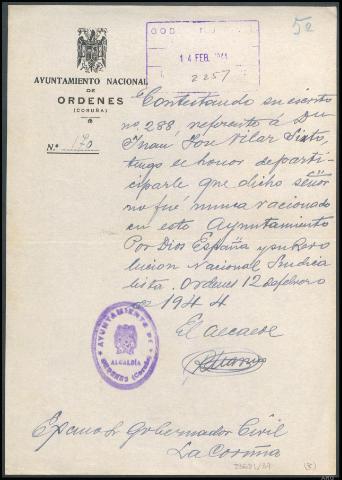 52
GOB
14 FEB. 1944
2257
AYUNTAMIENTO NACIONAL
DE
ORDENES
(CORUÑA)
N.º 170
Contestando su escrito
nº 288, referente á Dn
Juan José Vilar Sixto,
tengo el honor de parti-
ciparle que dicho señor
no fué nunca racionado
en este Ayuntamiento
Por Dios España y su Revo
lucion Nacional Sindica
lista. Ordenes 12 de febrero
de 1944
El alcalde
AYUNTAMIENTO DE
ALCALDÍA
ORDENES (Coruña)
Excmo Sr Gobernador Civil
La Coruña
(5)